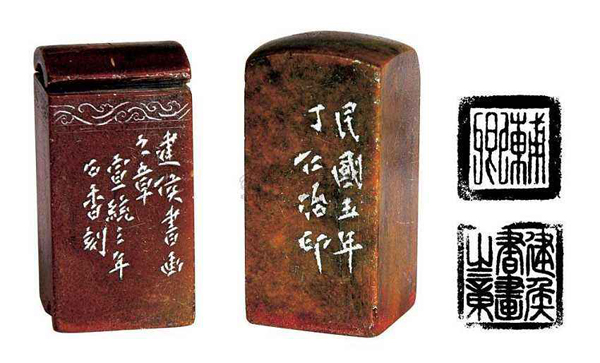 建侯書画
之章
宣統三年
香刻
民國五年
丁仁治印
建侯
書畫
之章